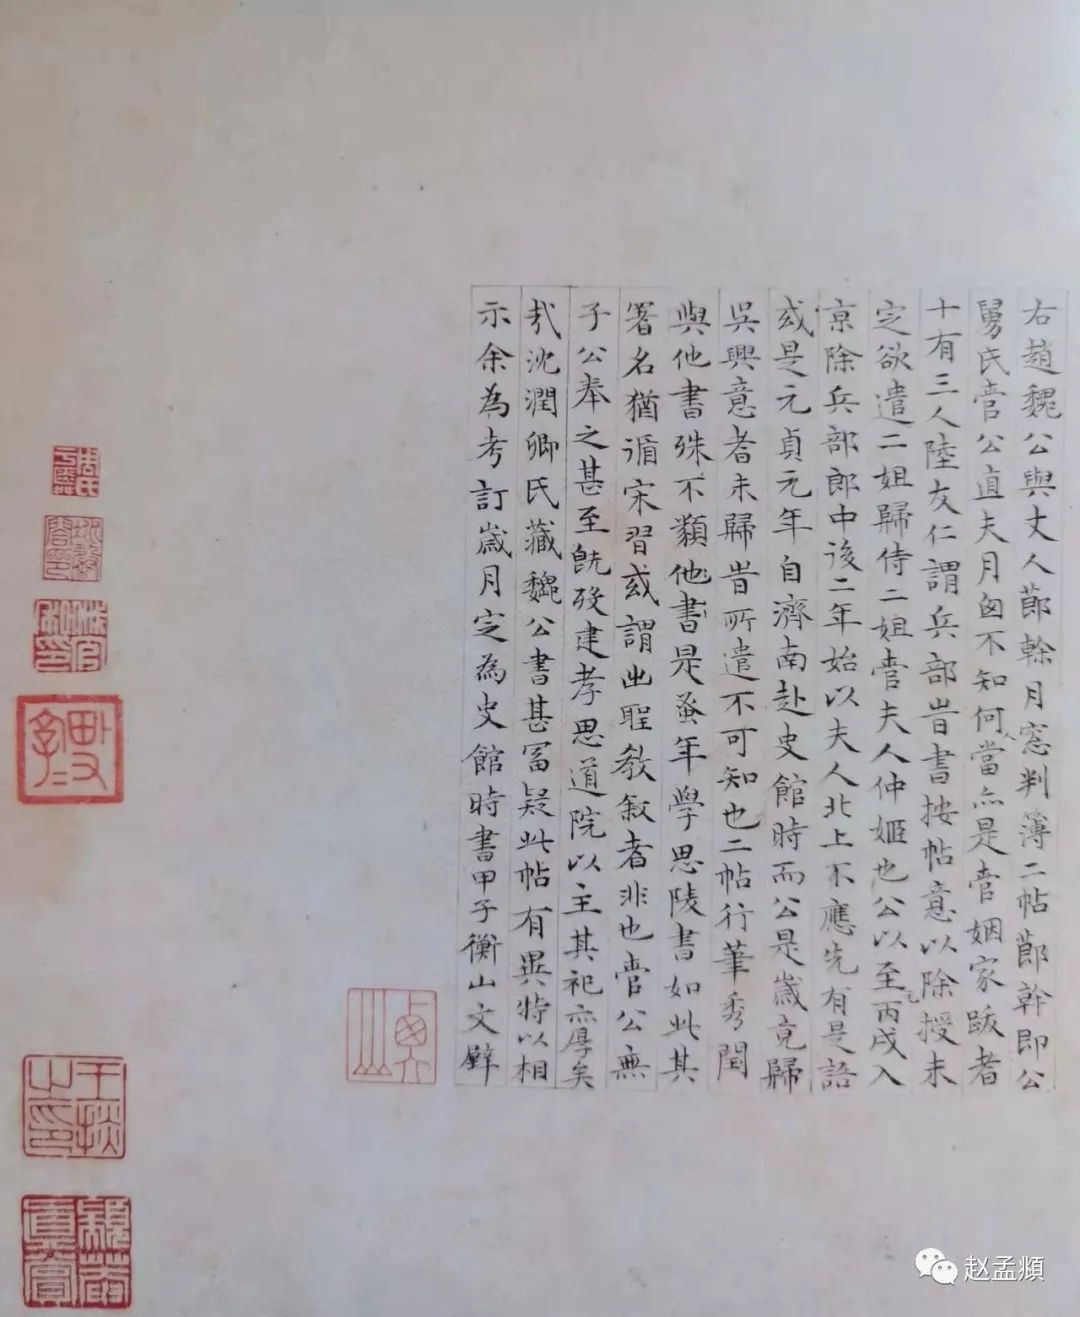 右趙魏公與丈人莭榦月窓判簿二帖莭幹即公
舅氏管公直夫月囪不知何人當亦是管姻家跋者
十有三人陸友仁謂兵部時書按帖意以除授未
定欲遣二姐歸侍二姐管夫人仲姬也公以至元丙戌入
京除兵部郎中後二年始以夫人北上不應先有是語
或是元貞元年自濟南赴史館時而公是歲竟歸
吳興意者未歸時所遣不可知也二帖行筆秀閏
與他書殊不類他書是蚤年學思陵書如此其
署名猶循宋習或謂出聖教敘者非也管公無
子公奉之甚至既歿建孝思道院以主其祀亦厚矣
哉沈潤卿氏藏魏公書甚富疑此帖有異特以相
示余為考訂歲月定為史館時書甲子衡山文壁
王掞之印
真賞
赵孟頫